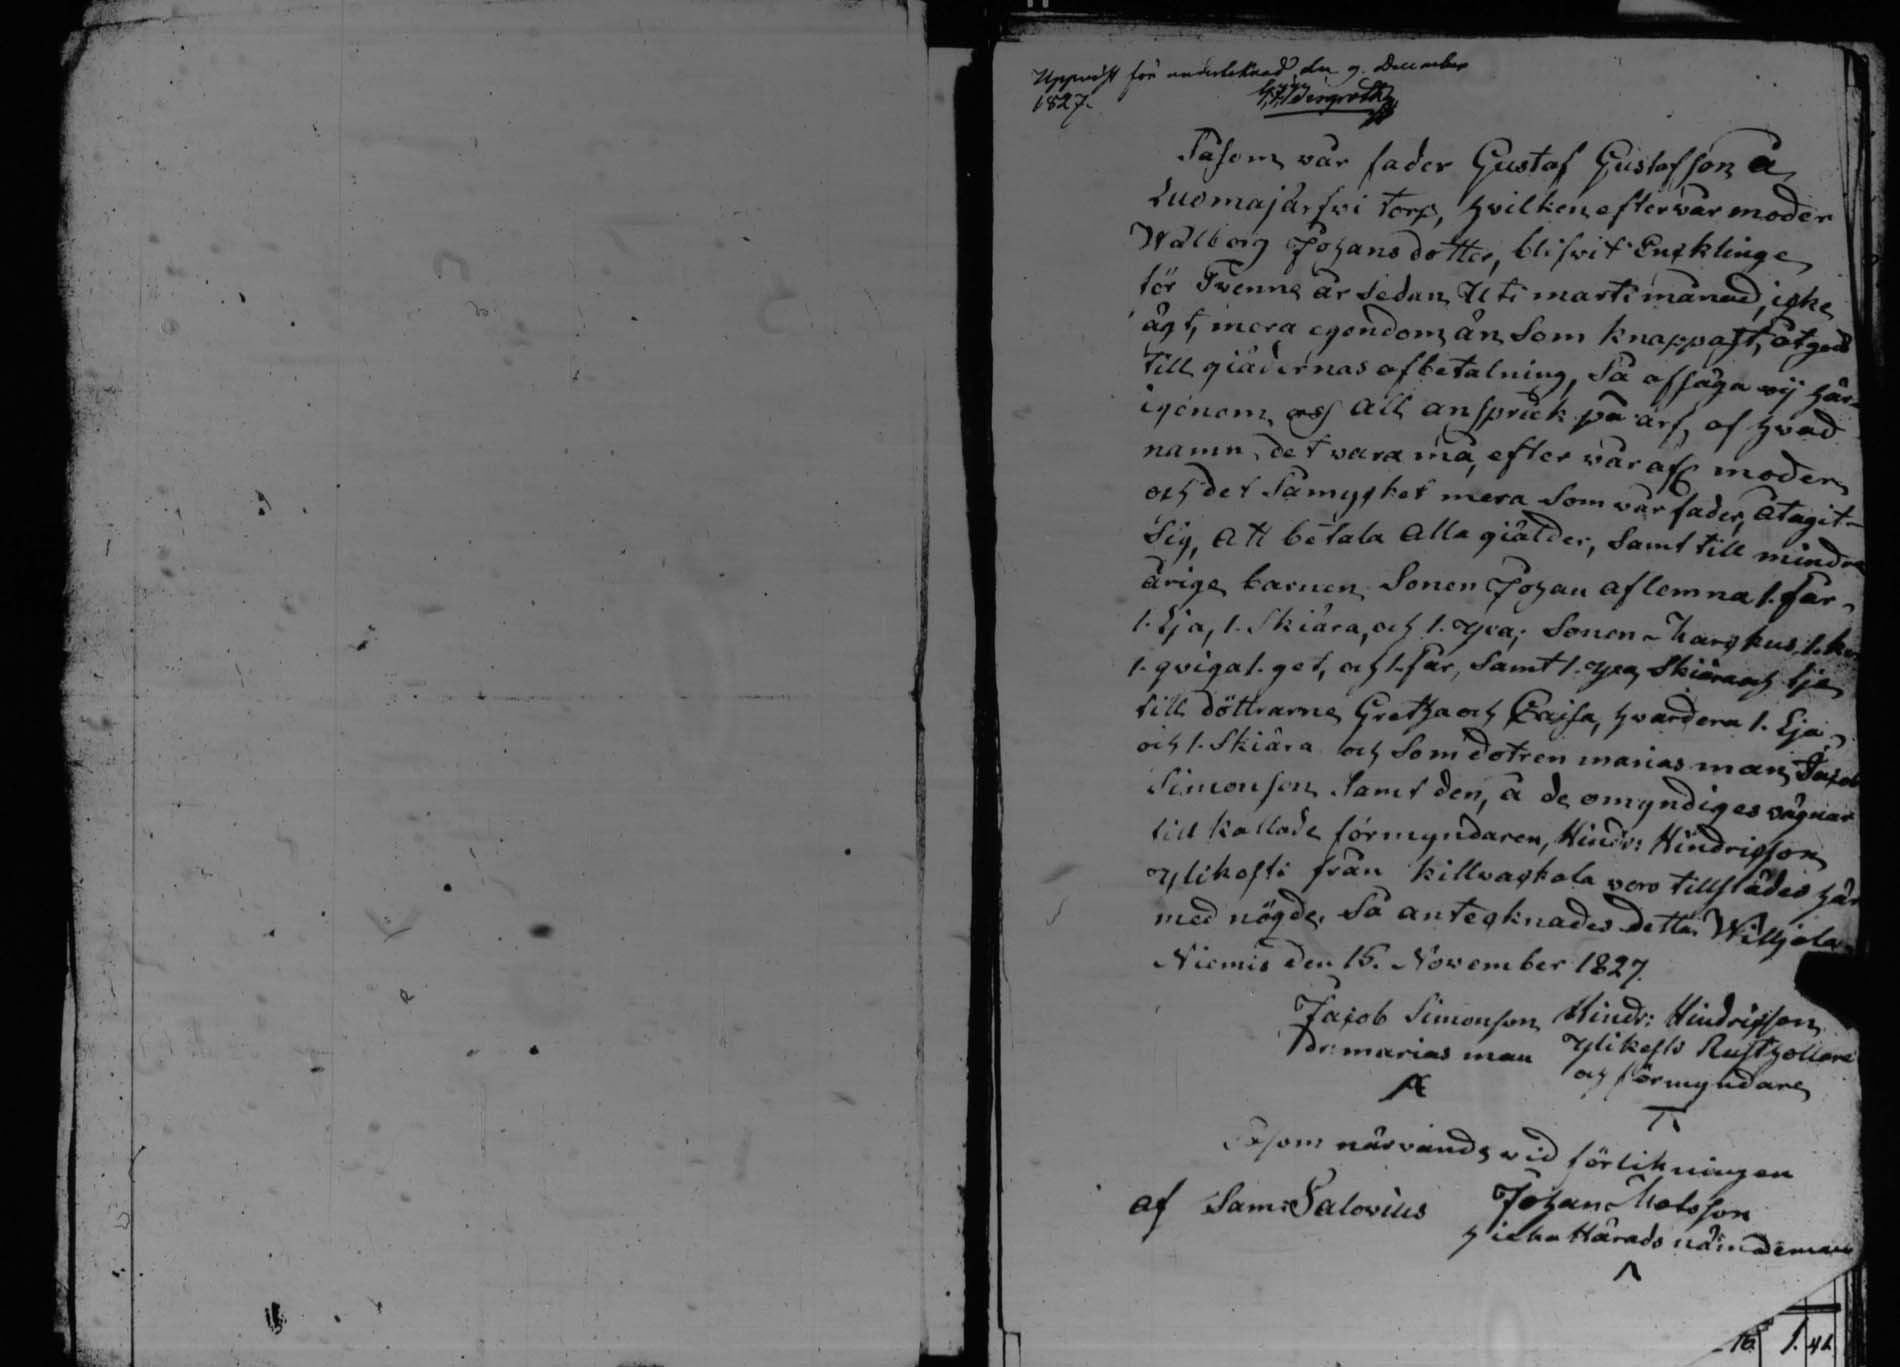 Uppvist för underteknad den 9. December
1827.
Såsom vår fader Gustaf Gustafsson å
Luomajärfvi torp, hvilken efter vår moder
Walborg Johansdotter, blifvit Enckling
för Tvenne år sedan Uti marti månad, icke
ägt, mera egendom än Som knappast, åtgad
till giädernas afbetalning, Så afsäga wij här-
igenom oss all anspråk på arf, af hvad
namn det vara må, efter vår afl moder
och det Såmycket mera Som vår fader, åtagit
Sig, att betala alla giälder, samt till mindre
årige barnen Sonen Johan aflemna 1. får
1. Lja, 1. Skiära, och 1. yxa; Sonen Marckus, 1. ko
1. qviga 1. get, och 1. får, samt 1. yxa, Skiära och Lja
till döttrarne Gretha och Caisa, hvardera 1. Lja
och 1. Skiära och Som dotren marias man Jacob
Simonson Samt den, å de omyndiges vägnar
till kallade förmyndaren, Hindr: Hindricsson
ylikosti från killvackala voro tillstädes här
med nögde, Så antecknades detta. Willjola
Niemis den 15. November 1827.
Jacob Simonson Hindr: Hindricsson
Dr: marias man Ylikosti Rusthollare
och förmyndare
Såsom närvande vid förlikningen
af Sam: Salovius Johan Matsson
härads nämdeman
16 1. 42